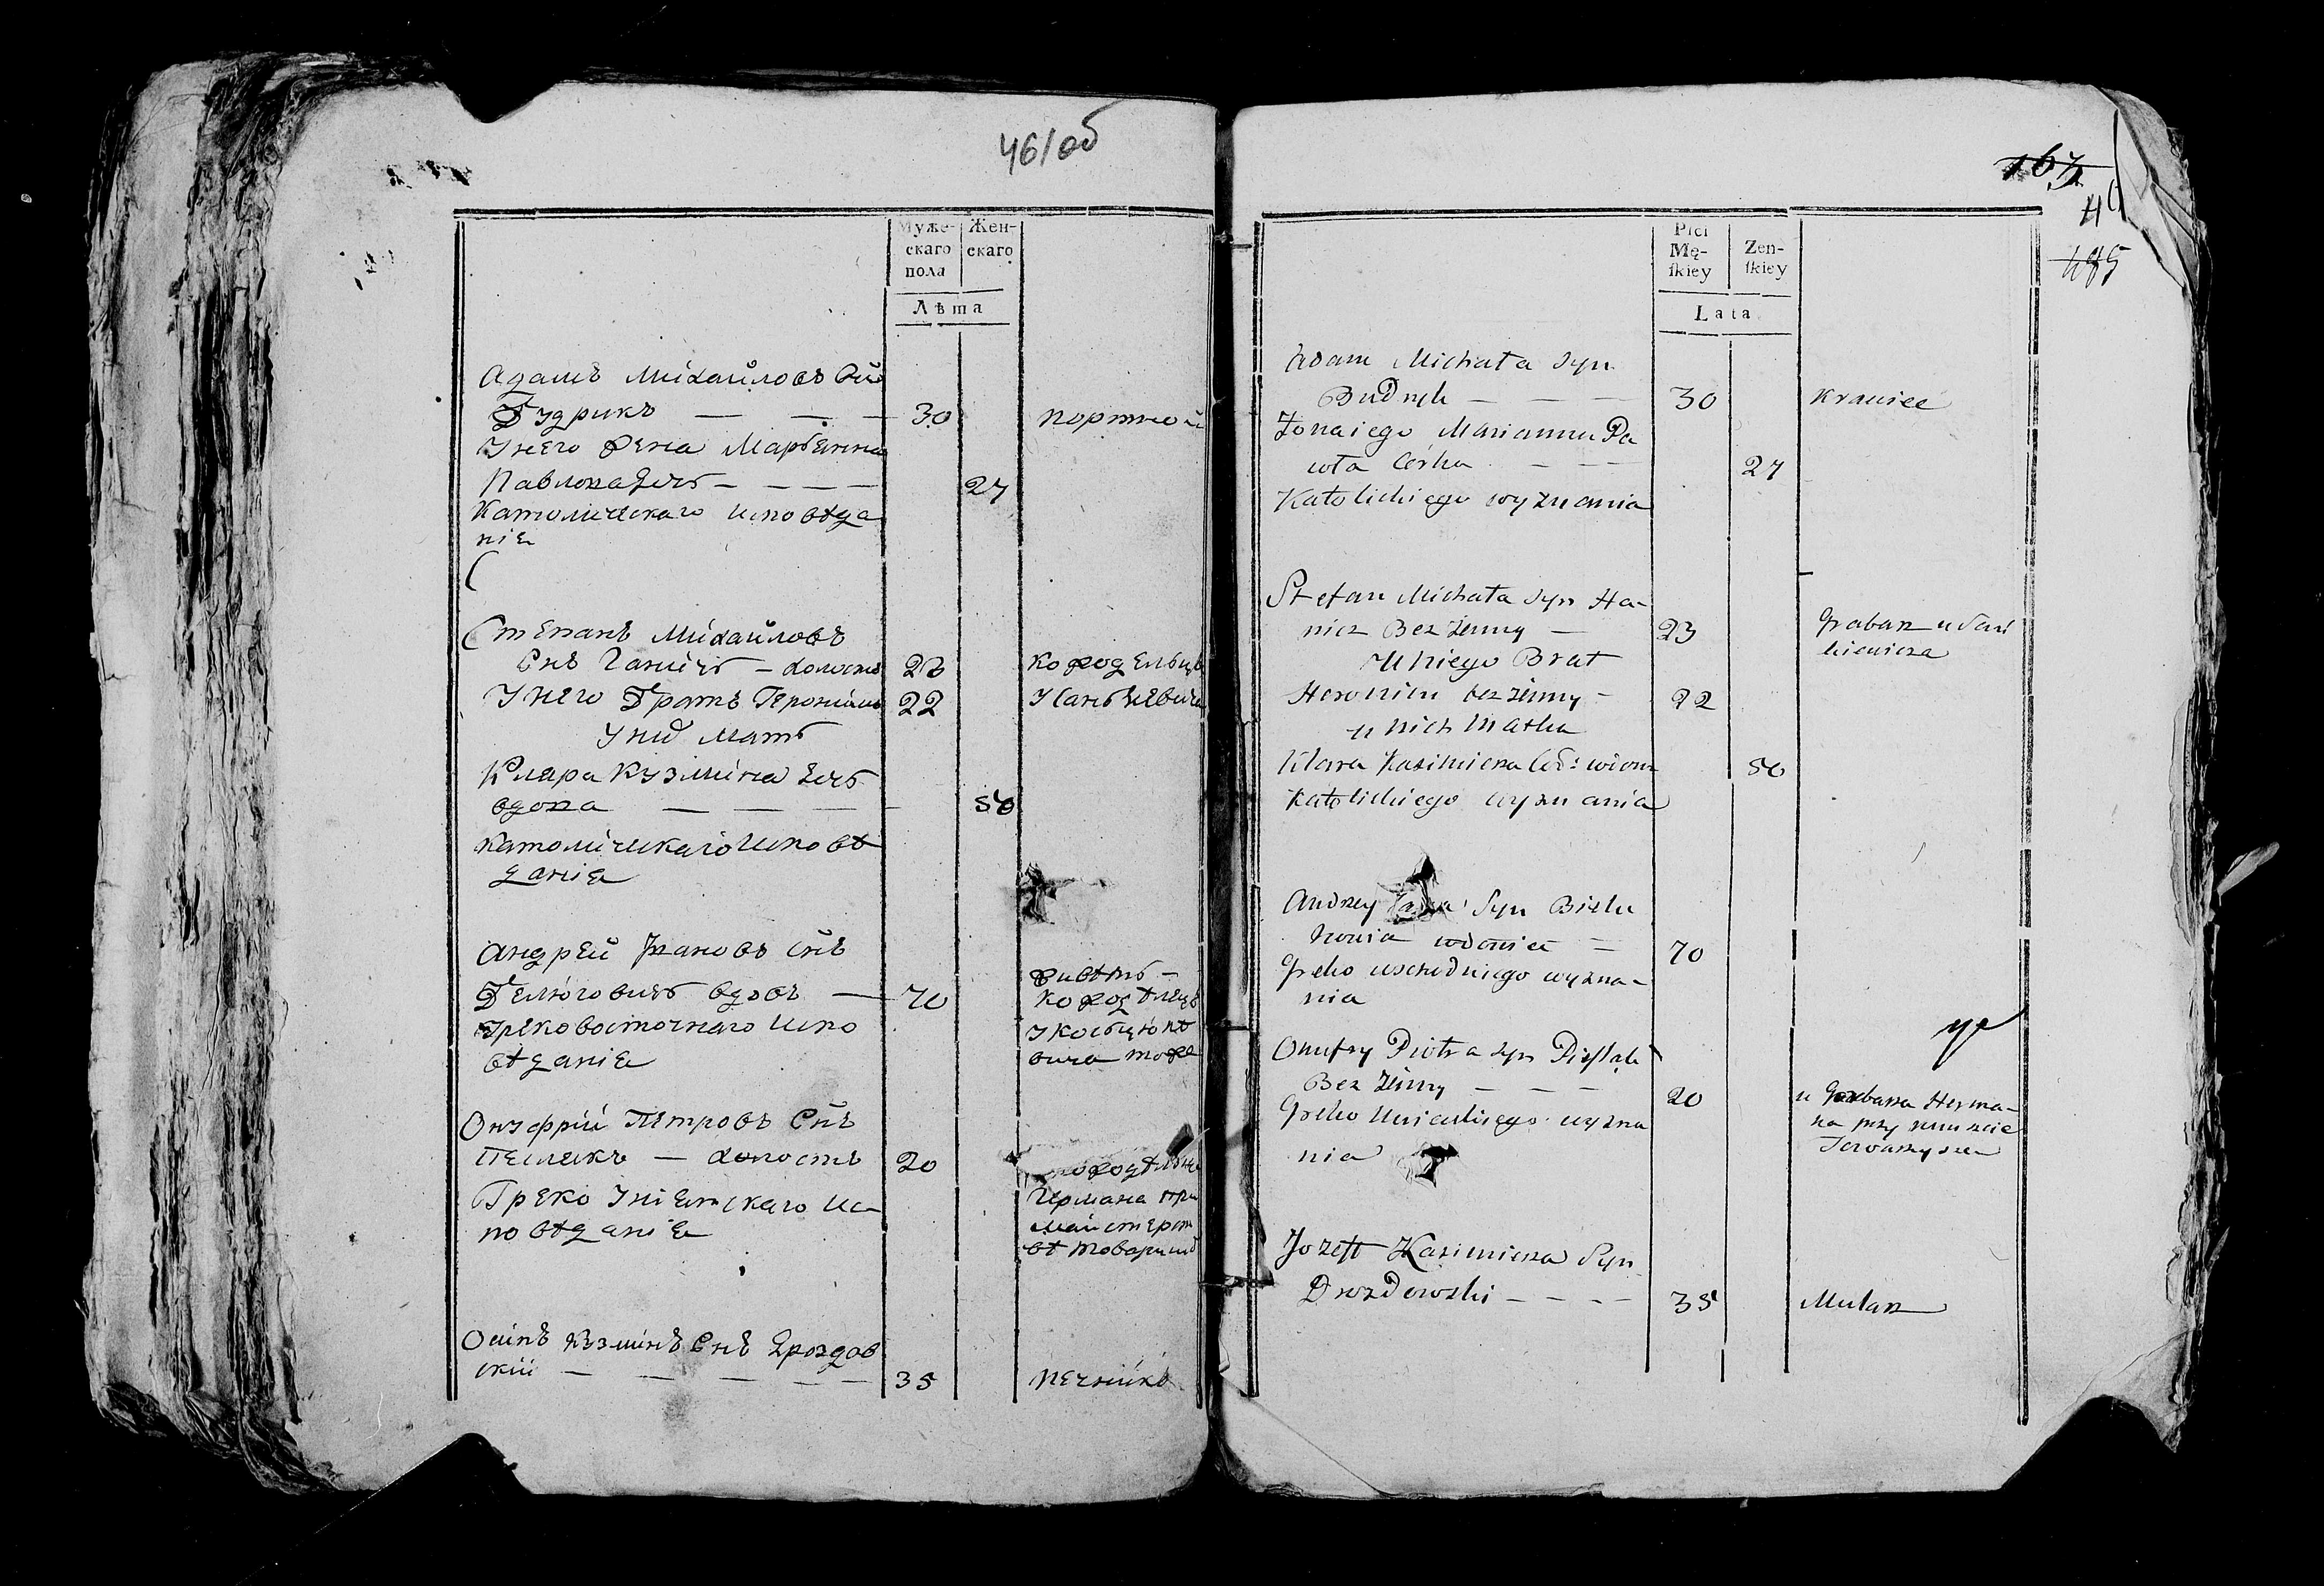 46/об
Муже-
скаго
пола
Жен-
скаго
Лѣта
Адамъ Михайловъ Сынъ
Будрикъ — — — 30 портной
У него Жена Марьянна
Павлова дочь — — — — 27
Католическаго исповѣда
ніе
Степанъ Михайловъ
Снъ Ганичъ — холостъ 23 кожодѣлецъ
У него Братъ Геронимъ 22
У ни⁠х Мать
Клара Кузмина дочь
вдова — — — 50
католическаго исповѣ
даніе
Андрей Яновъ Снъ
вдовъ — 70
Греко восточнаго испо
вѣданіе
Онуфрій Петровъ Снъ
Песлякъ — холостъ 20
Греко Уніетскаго ис-
повѣданіе
Германа при
Осипъ Кузминъ Снъ Дроздов
скій — — — — — 35 печникъ
167
46
485
Płci
Mę-
ſkiey
Zen-
ſkiey
Lata
Adam Michała Syn
Budryk — — — 30 Krawiec
Zona iego Marianna Pa
wła Corka — — — 27
Katolickiego wyznania
Stefan Michała Syn Ha-
nicz Bez Żenny — 23 Grabarz u Sani
U niego Brat
Heronim bez żenny — 22
u nich Matka
Klara Kazimierza Cor: wdowa 50
Katolickiego wyznania
Andrzey Jana Syn
wdowiec — 70
Greko wschodniego wyzna-
nia
Onufry Piotra Syn Pieslak
Bez Żenny — — — 20
u Garbarza Herma-
na przy kunszcie
Greko Unickiego wyzna
nia
Jozeff Kazimierza Syn
Drozdowski — — — — 35 Mularz